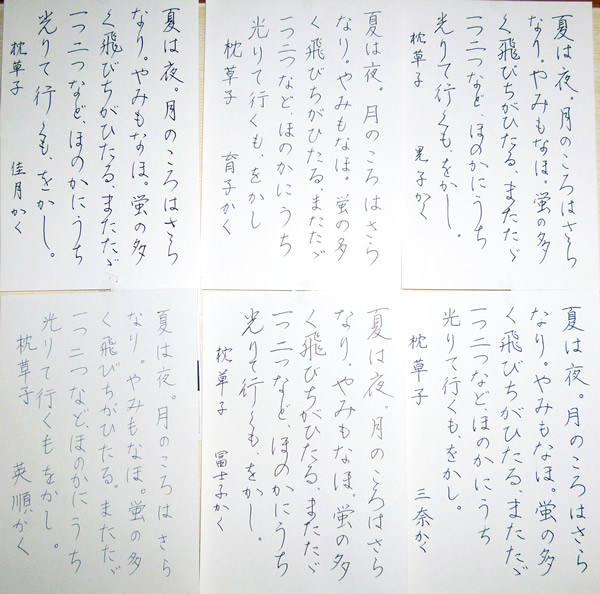 夏は夜。月のころはさら
なり。やみもなほ。蛍の多
く飛びちがひたる、またたゞ
一つ二つなど、ほのかにうち
光りて行くも、をかし。
枕草子 晃子かく
夏は夜。月のころはさら
なり。やみもなほ。蛍の多
く飛びちがひたる、またたゞ
一つ二つなど、ほのかにうち
光りて行くも、をかし
枕草子 育子かく
夏は夜。月のころはさら
なり。やみもなほ。蛍の多
く飛びちがひたる、またたゞ
一つ二つなど、ほのかにうち
光りて行くも、をかし。
枕草子 佳月かく
夏は夜。月のころはさら
なり。やみもなほ。蛍の多
く飛びちがひたる、またたゞ
一つ二つなど、ほのかにうち
光りて行くも、をかし。
枕草子 三奈かく
夏は夜。月のころはさら
なり。やみもなほ。蛍の多
く飛びちがひたる、またたゞ
一つ二つなど、ほのかにうち
光りて行くも、をかし。
枕草子 冨士子かく
夏は夜。月のころはさら
なり。やみもなほ。蛍の多
く飛びちがひたる。またたゞ
一つ二つなど、ほのかにうち
光りて行くもをかし。
枕草子 英順かく